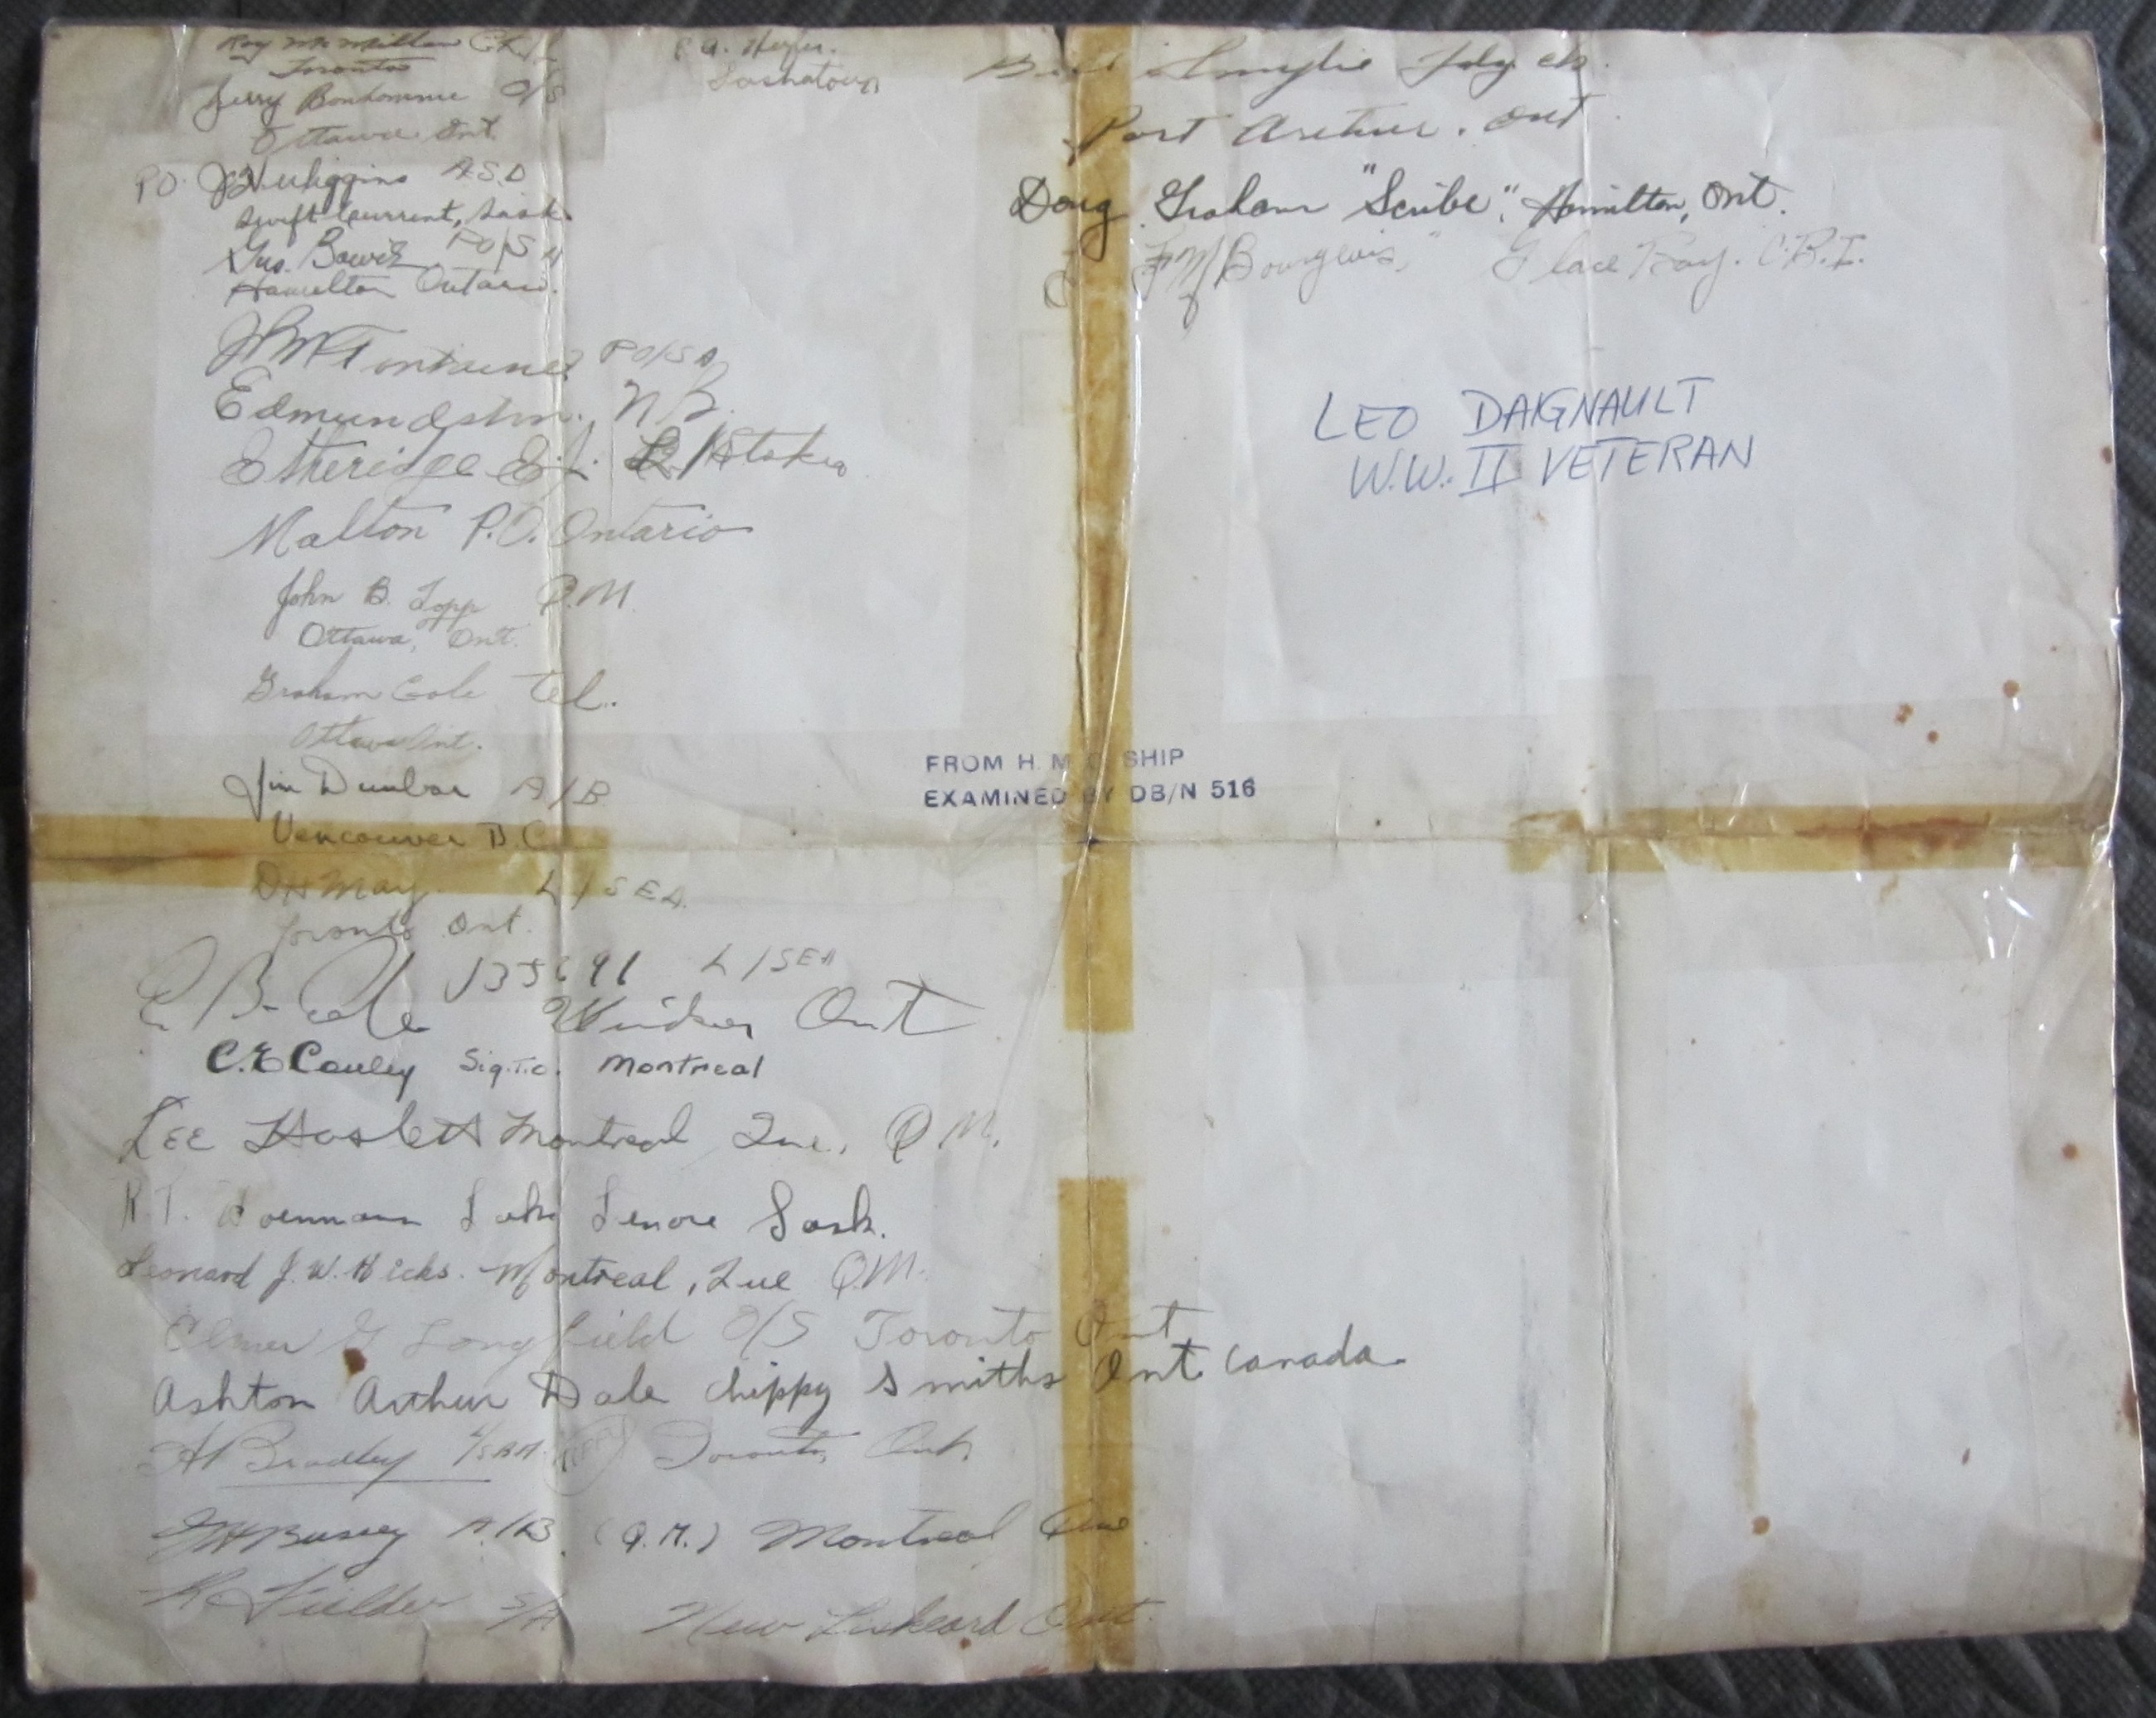 Roy McMillan
Toronto
Jerry Bonhomme O/S
Ottawa Ont.
PO. Higgins A.S.D
Swift Current, Sask.
Geo. PO/S
Hamilton Ontario.
PO/SA
Edmundston. N.B.
Etheridge E.J. /Stoker
Malton P.O. Ontario
John B. Topp Q.M.
Ottawa, Ont.
Graham Cole Tel.
Ottawa Ont.
Jim Dunbar A/B
Vancouver B.C.
DH May L/SEA.
Toronto Ont.
E B. Cole L/SEA
Windsor Ont
C.E. Cauley Sig. T.O. Montreal
Lee Haslett Montreal Que. Q.M.
R.T. Lake Lenore Sask.
Leonard J.W. Hicks. Montreal, Que Q.M.
Elmer G Longfield O/S Toronto Ont
Ashton Arthur Dale Chippy Smiths Ont. Canada.
H Bradley Toronto, Ont.
Bussey A/B. (Q.M.) Montreal Que
R Fielder S/A New Liskeard Ont.
Saskatoon
Bill Smylie
Port Arthur. Ont
Doug Graham "Scribe", Hamilton, Ont.
Bourgeois, Glace Bay. C.B.I.
LEO DAIGNAULT
W.W. II VETERAN
FROM H. M. C. SHIP
EXAMINED BY DB/N 516